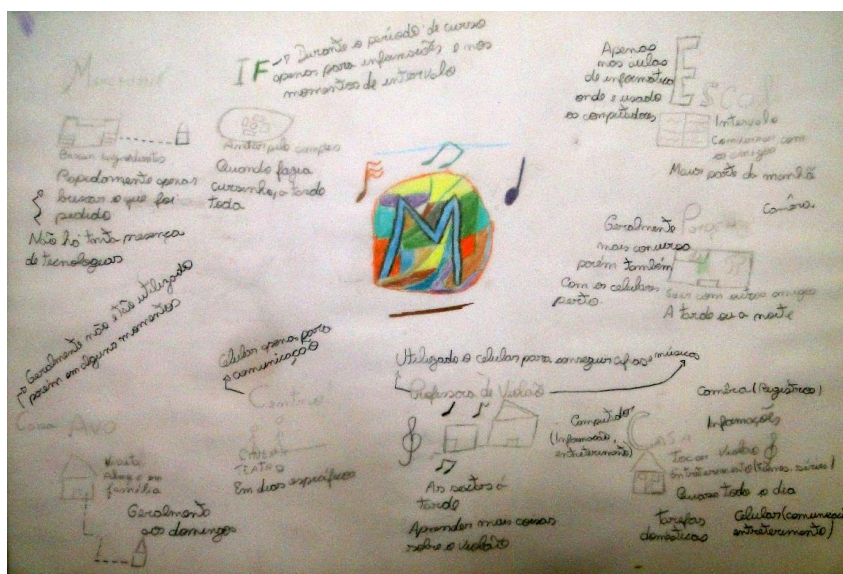 Mercado
Buscar ingredientes
Rapidamente apenas
buscar o que foi
pedido
Não há tanta presença
de tecnologias
IF
Durante o período de curso
apenas para informações e nos
momentos de intervalo
Quando fazia
cursinho, a tarde
toda
M
Apenas
nas aulas
de informática
onde e usado
os computadores
ESCOL
Intervalo
Conversar com
os amigos
Maior parte da manhã
Câmera
Geralmente
mais converso
porém também
Com os celulares
perto
Sair com outros amigos
A tarde ou a noite
Geralmente não é tão utilizado
porém em alguns momentos
Casa Avó
Visita
Almoço em
família
Geralmente
aos domingos
Celular apenas para
a comunicação
Centro
TEATRO
Em dias específicos
Utilizado o celular para conseguir cifras e músicas
Professora de Violão
As sextas á
tarde
Aprender mais coisas
sobre o violão
Computador
(Informação,
entreterimento)
CASA
Câmera (Registros)
Informações
Tocar Violão
Entreterimento (filmes, séries)
Quase todo o dia
tarefas
domésticas
Celular (comunicaçã
entreterimento)